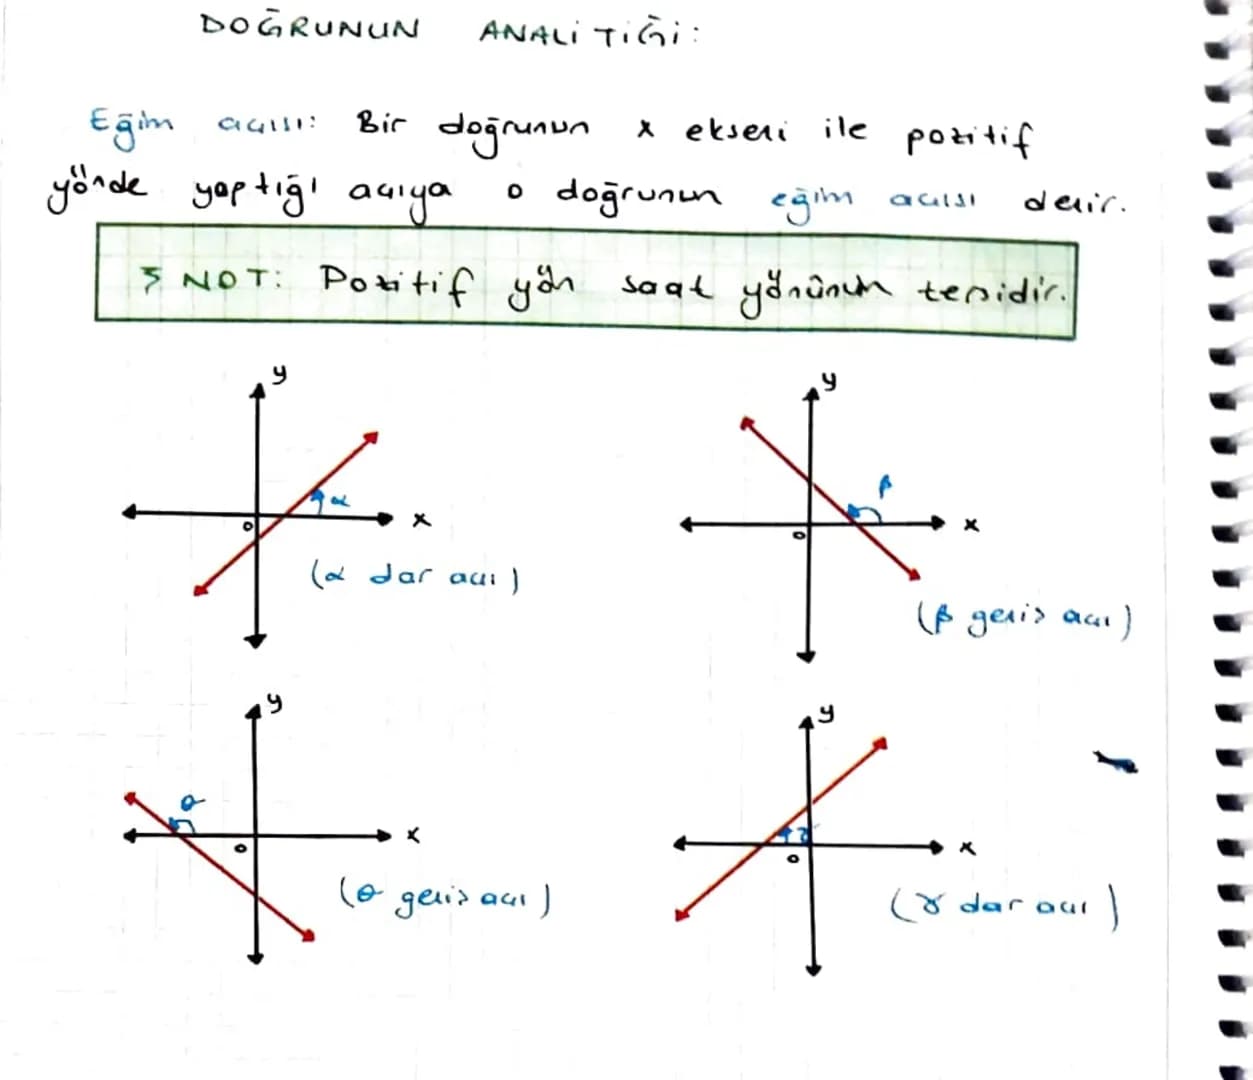 DOĞRUNUN ANALİTİĞİ:
Eğim açısı: Bir doğrunun x ekseni ile pozitif
yönde yaptığı açıya o doğrunun eğim açısı denir.
NOT: Pozitif yön saat yönünün tersidir.
y
α
x
o
(α dar açı)
y
β
x
o
(β geniş açı)
y
θ
x
o
(θ geniş açı)
y
γ
x
o
(γ dar açı)